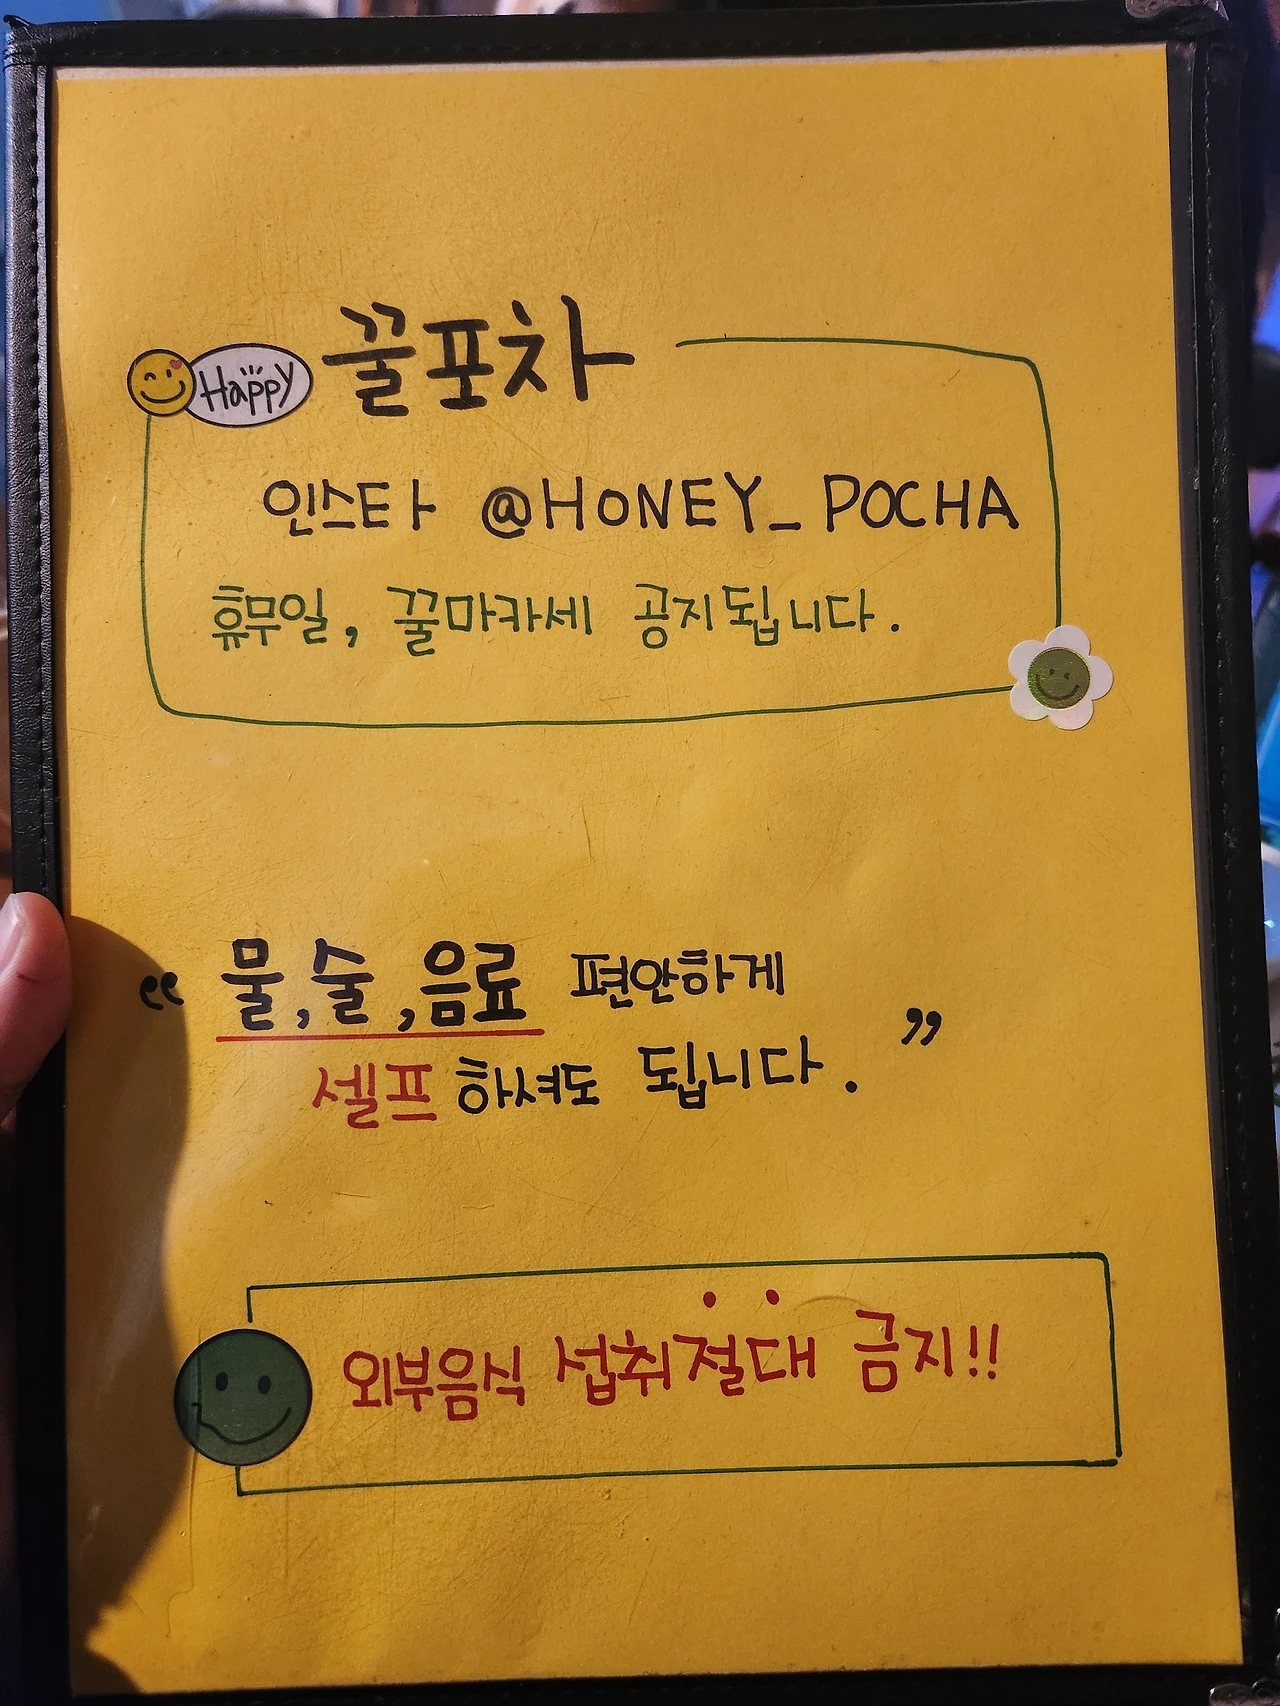 Happy 꿀포차
인스타 @HONEY_POCHA
휴무일, 꿀마카세 공지됩니다.
“ 물, 술, 음료 편안하게
셀프 하셔도 됩니다. ”
외부음식 섭취절대 금지!!